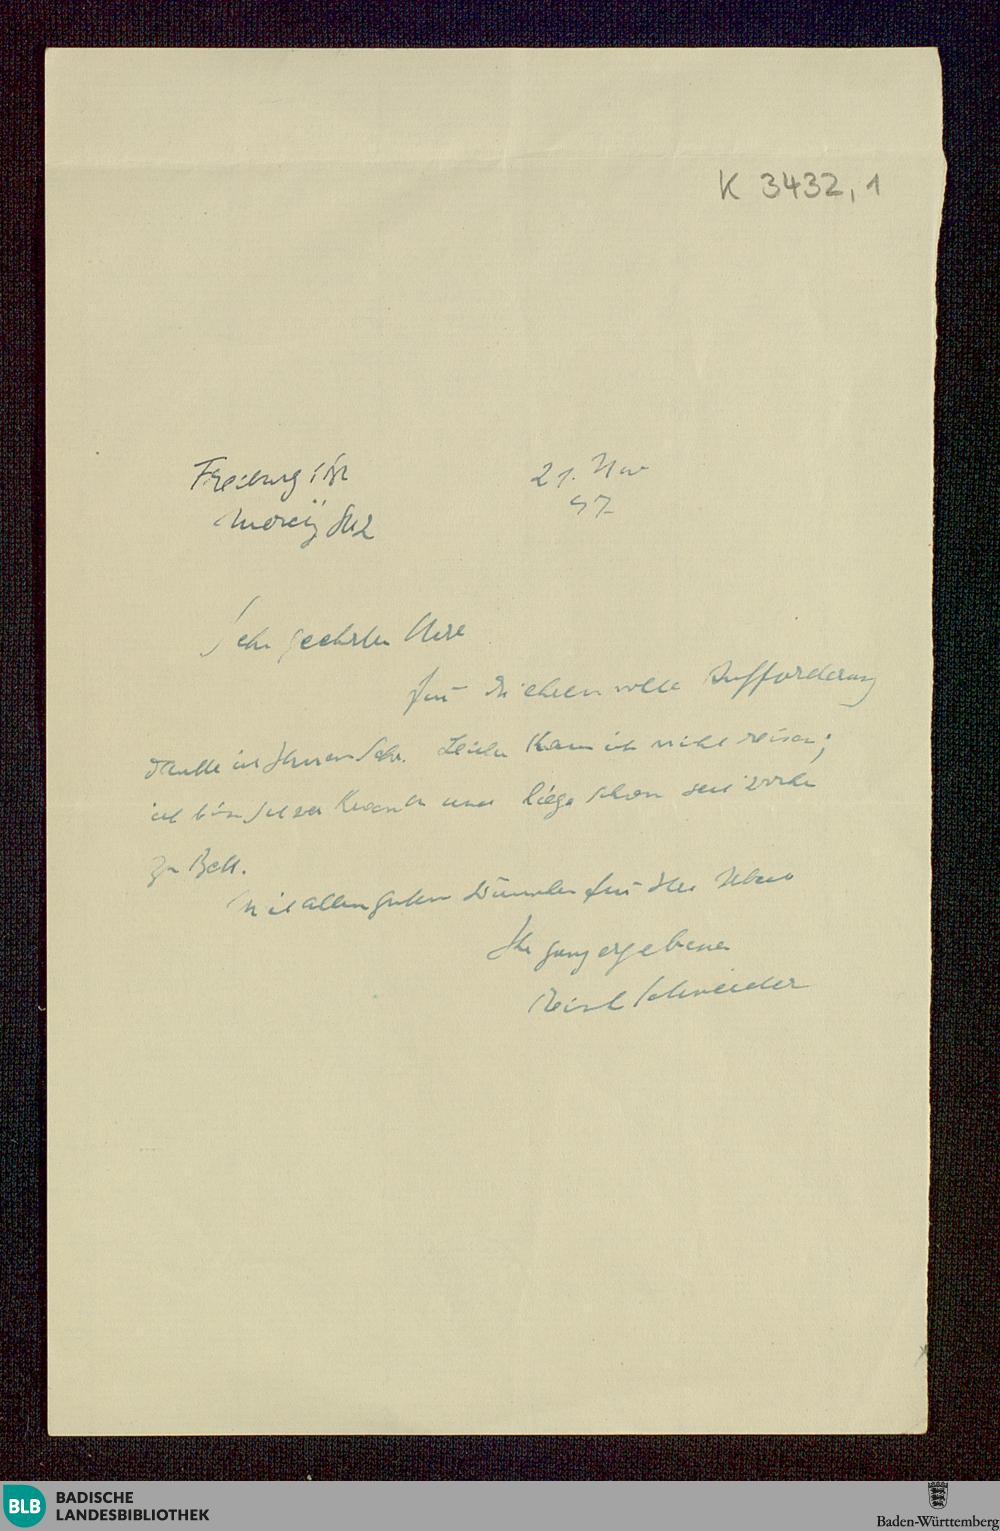 K 3432,1
Freiburg i Br
Mercystr 2
21. Nov
47
Sehr geehrter Herr
für die ehrenvolle Aufforderung
danke ich Ihnen sehr. Leider kann ich nicht reisen;
ich bin schwer krank und liege schon seit
zu Bett.
Mit allen guten Wünschen für Ihr
Ihr ganz ergebener
Reinhold Schneider
BLB BADISCHE
LANDESBIBLIOTHEK
Baden-Württemberg